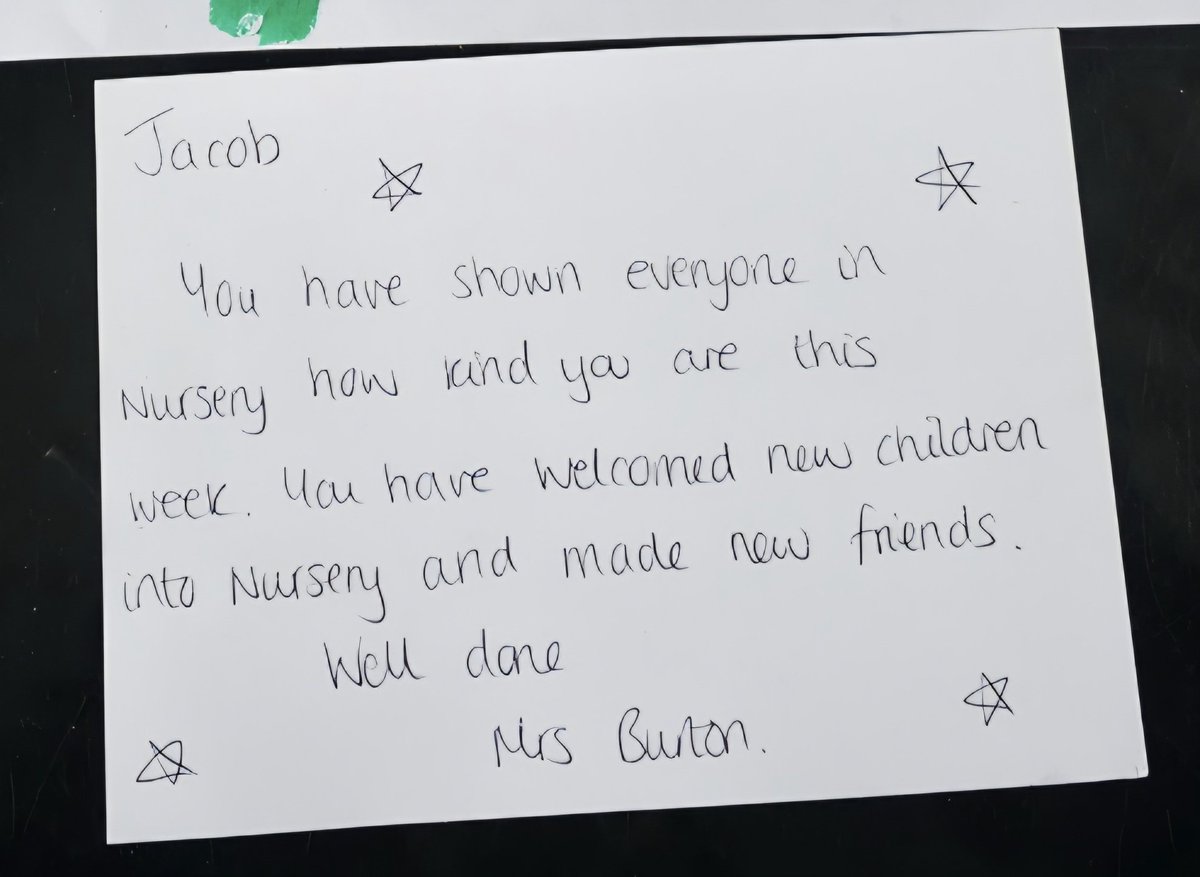 Jacob
You have shown everyone in
Nursery how kind you are this
week. You have welcomed new children
into Nursery and made new friends.
Well done
Mrs Burton.